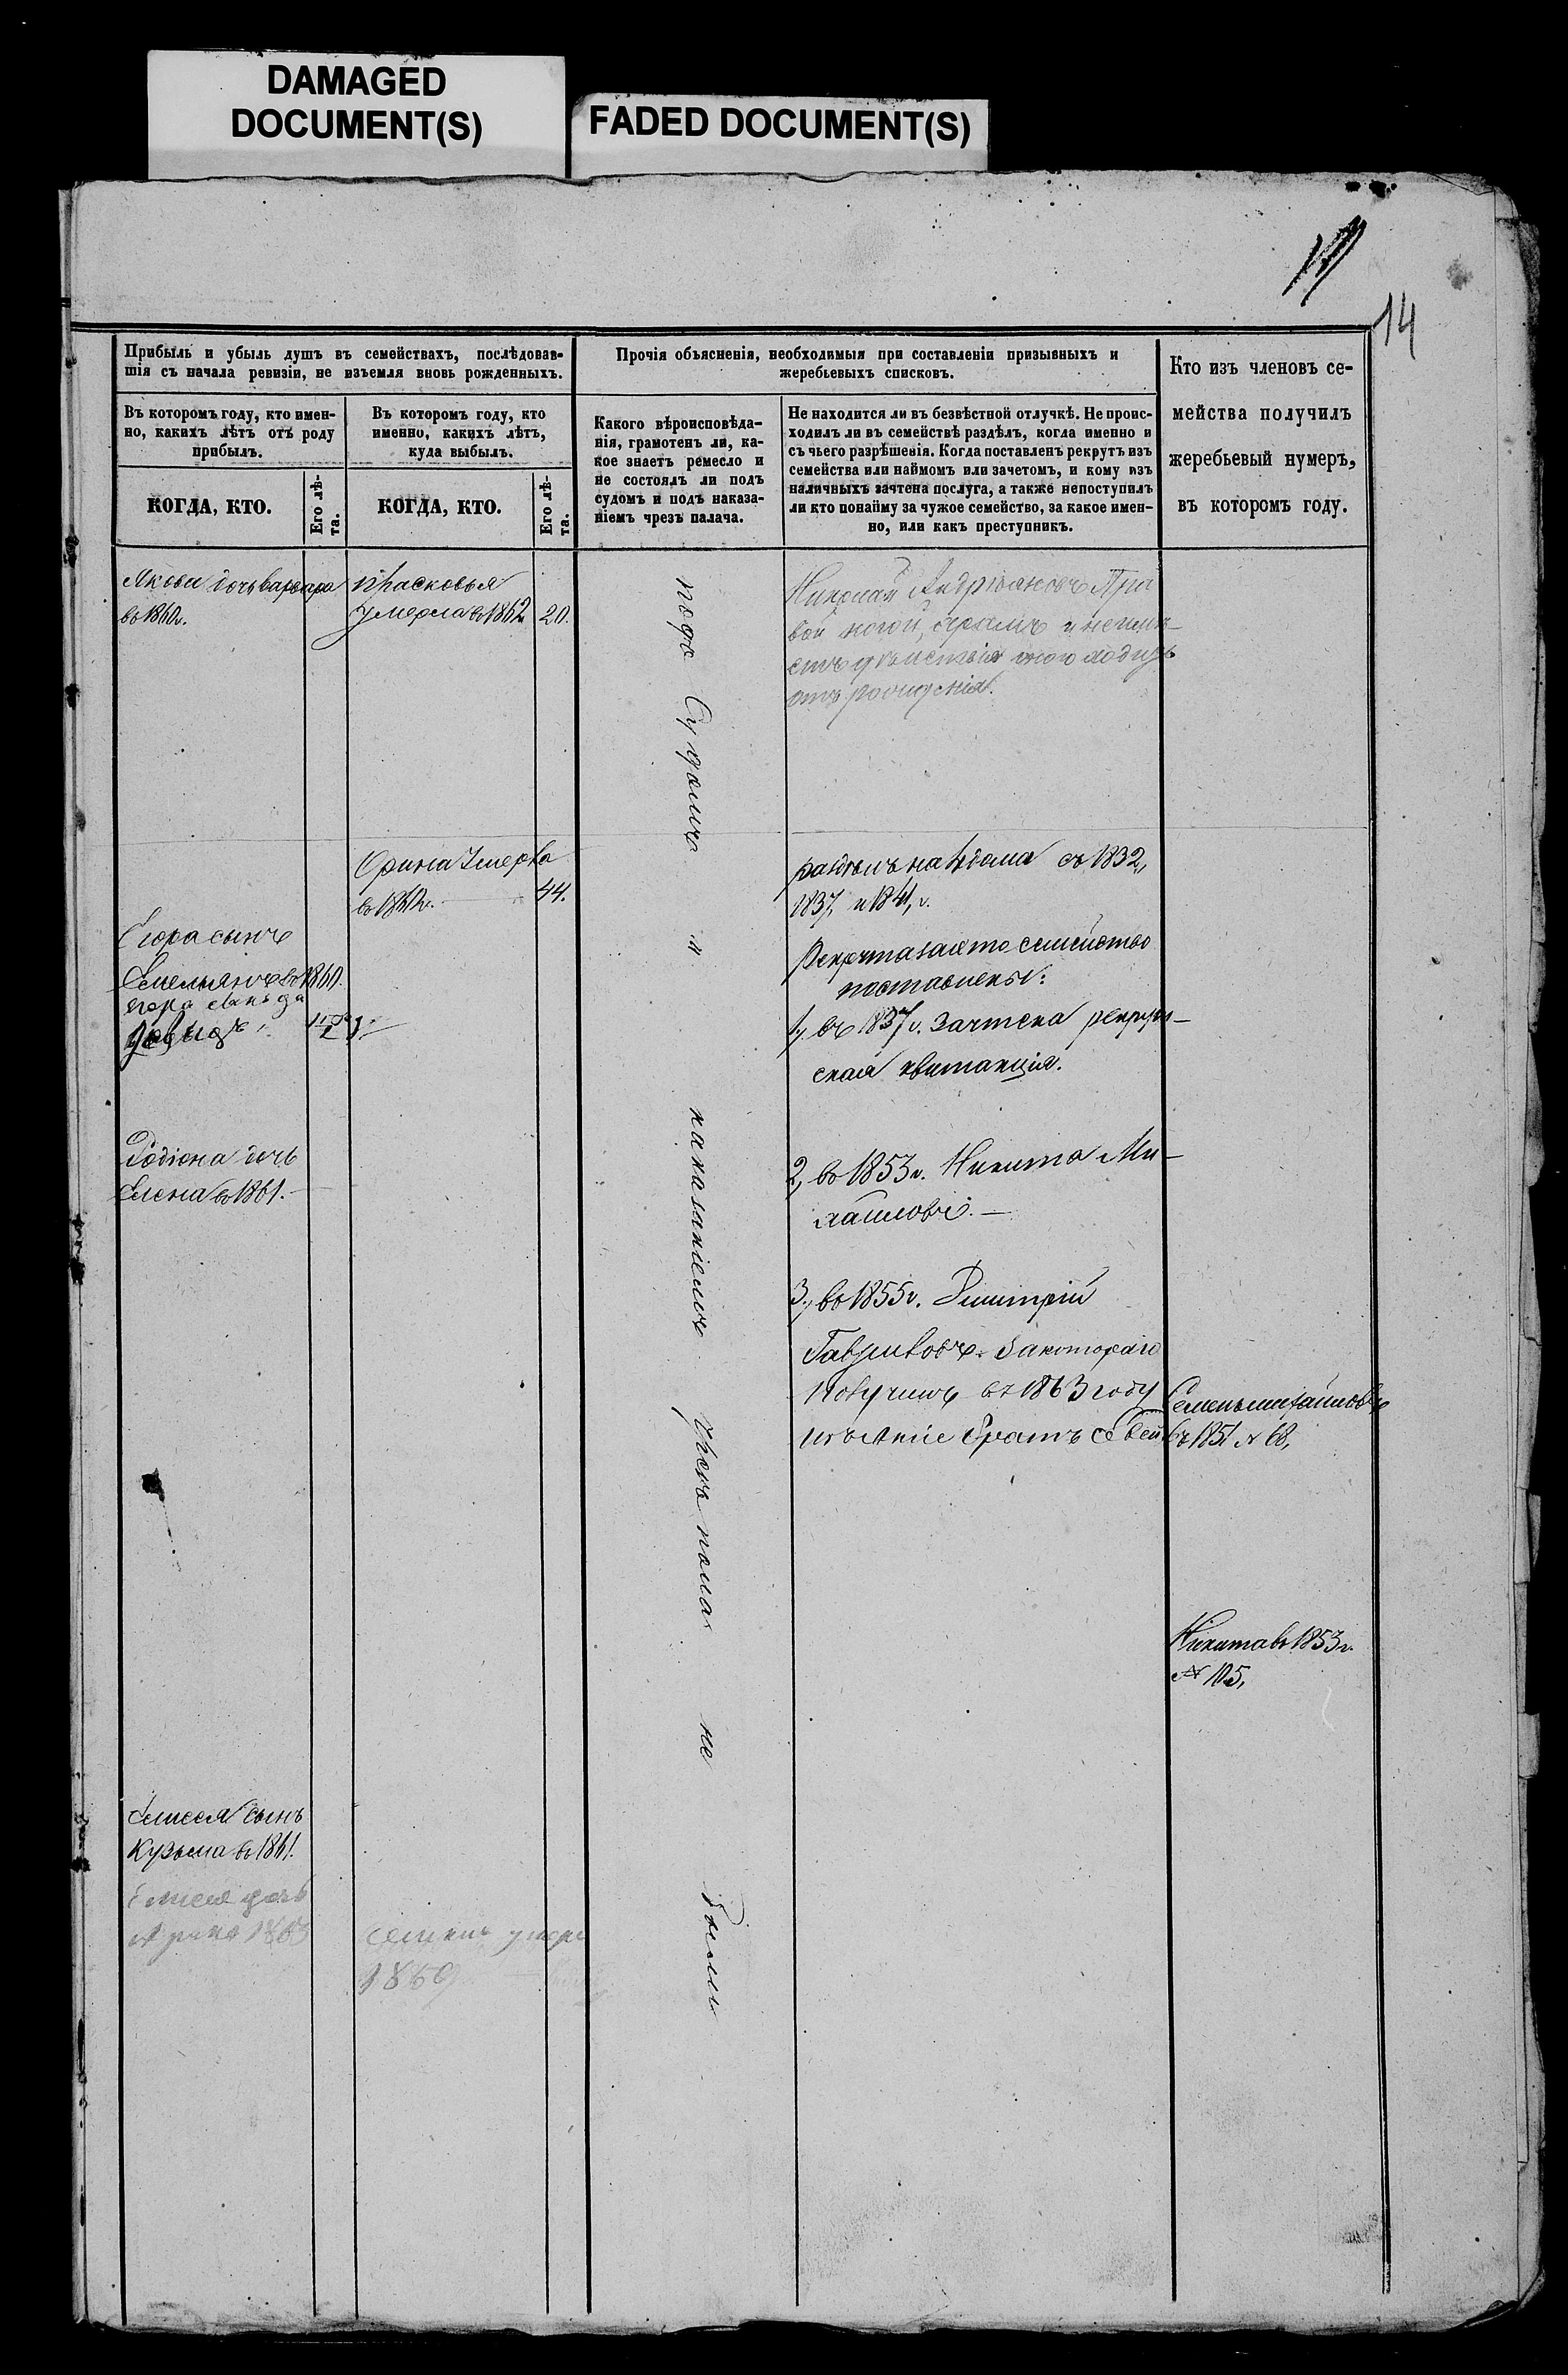 DAMAGED
DOCUMENT(S)
FADED DOCUMENT(S)
14
Прибыль и убыль душъ въ семействахъ, послѣдовав-
шія съ начала ревизіи, не изъемля вновь рожденныхъ.
Прочія объясненія, необходимыя при составленіи призывныхъ и
жеребьевыхъ списковъ.
Кто изъ членовъ се-
мейства получилъ
жеребьевый нумеръ,
въ которомъ году.
Въ которомъ году, кто имен-
но, какихъ лѣтъ отъ роду
прибылъ.
Въ которомъ году, кто
именно, какихъ лѣтъ,
куда выбылъ.
Какого вѣроисповѣда-
нія, грамотенъ ли, ка-
кое знаетъ ремесло и
не состоялъ ли подъ
судомъ и подъ наказа-
ніемъ чрезъ палача.
Не находится ли въ безвѣстной отлучкѣ. Не проис-
ходилъ ли въ семействѣ раздѣлъ, когда именно и
съ чьего разрѣшенія. Когда поставленъ рекрутъ изъ
семейства или наймомъ или зачетомъ, и кому изъ
наличныхъ зачтена послуга, а также непоступилъ
ли кто понайму за чужое семейство, за какое имен-
но, или какъ преступникъ.
КОГДА, КТО.
Его лѣ-
та.
КОГДА, КТО.
Его лѣ-
та.
Якова дочь варвара
въ 1860 г.
Прасковья
умерла въ 1862 20.
Николай Андріановъ Пра
вой ногой, хромъ и неим
отъ рожденія.
Орина Умерла
въ 1860 г. 44.
Егора сынъ
Емельянъ въ 1860.
егора сынъ
Давидъ
Родіона дочь
Елена въ 1861.
раздѣлъ на 4 дома съ 1832,
1837, и 1841, г.
Рекрута за это семейство
поставлены:
1, въ 1837 г. Зачтена рекрут-
ская квитанція.
2, въ 1853 г. Никита Ми-
хайловъ. —
3, въ 1855 г. Димитрій
Гавриловъ. За котораго
Получилъ въ 1863 году
братъ
Семенъ михайловъ
въ 1851 № 68,
Никита въ 1853 г.
№ 105,
Елисея сынъ
Кузьма въ 1861.
Елисея дочь
Арина 1863
Семенъ умеръ
1869
подъ Судомъ и наказаніемъ Чрезъ палача не были